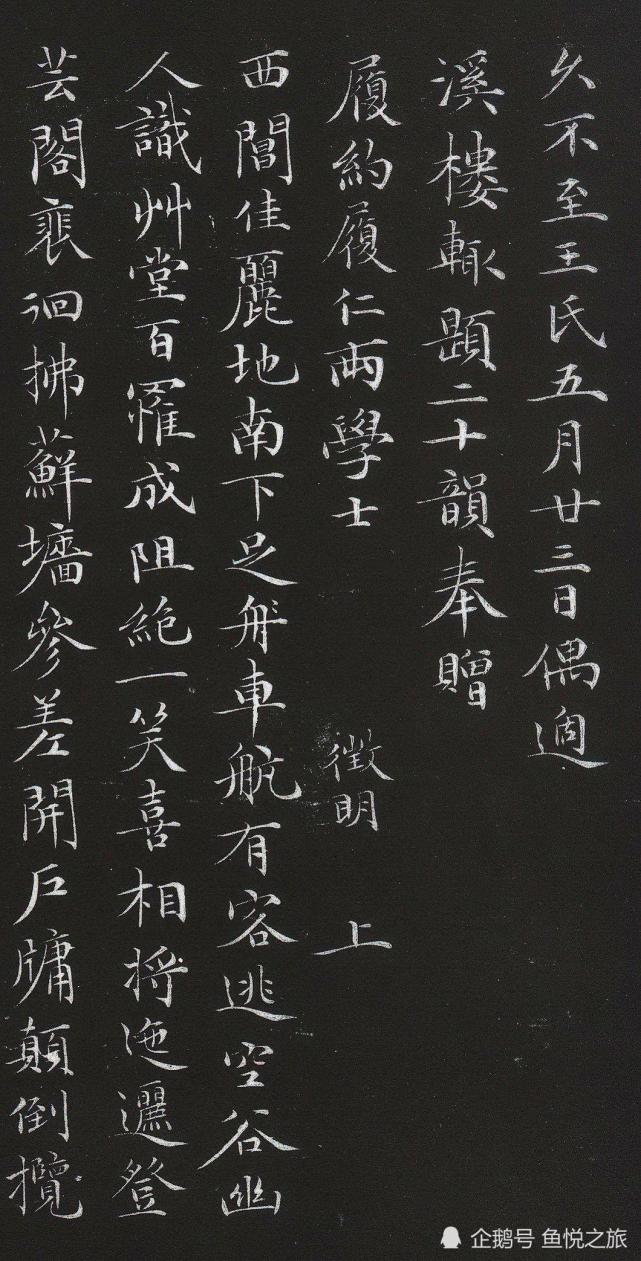 久不至王氏五月廿三日偶過
溪樓輒題二十韻奉贈
履約履仁兩學士
徵明 上
西閶佳麗地南下足舟車航有客逃空谷幽
人識艸堂百罹成阻絶一笑喜相將迤邐登
芸閣裵徊拂蘚墻參差開戶牗顛倒攬
企鹅号 鱼悦之旅